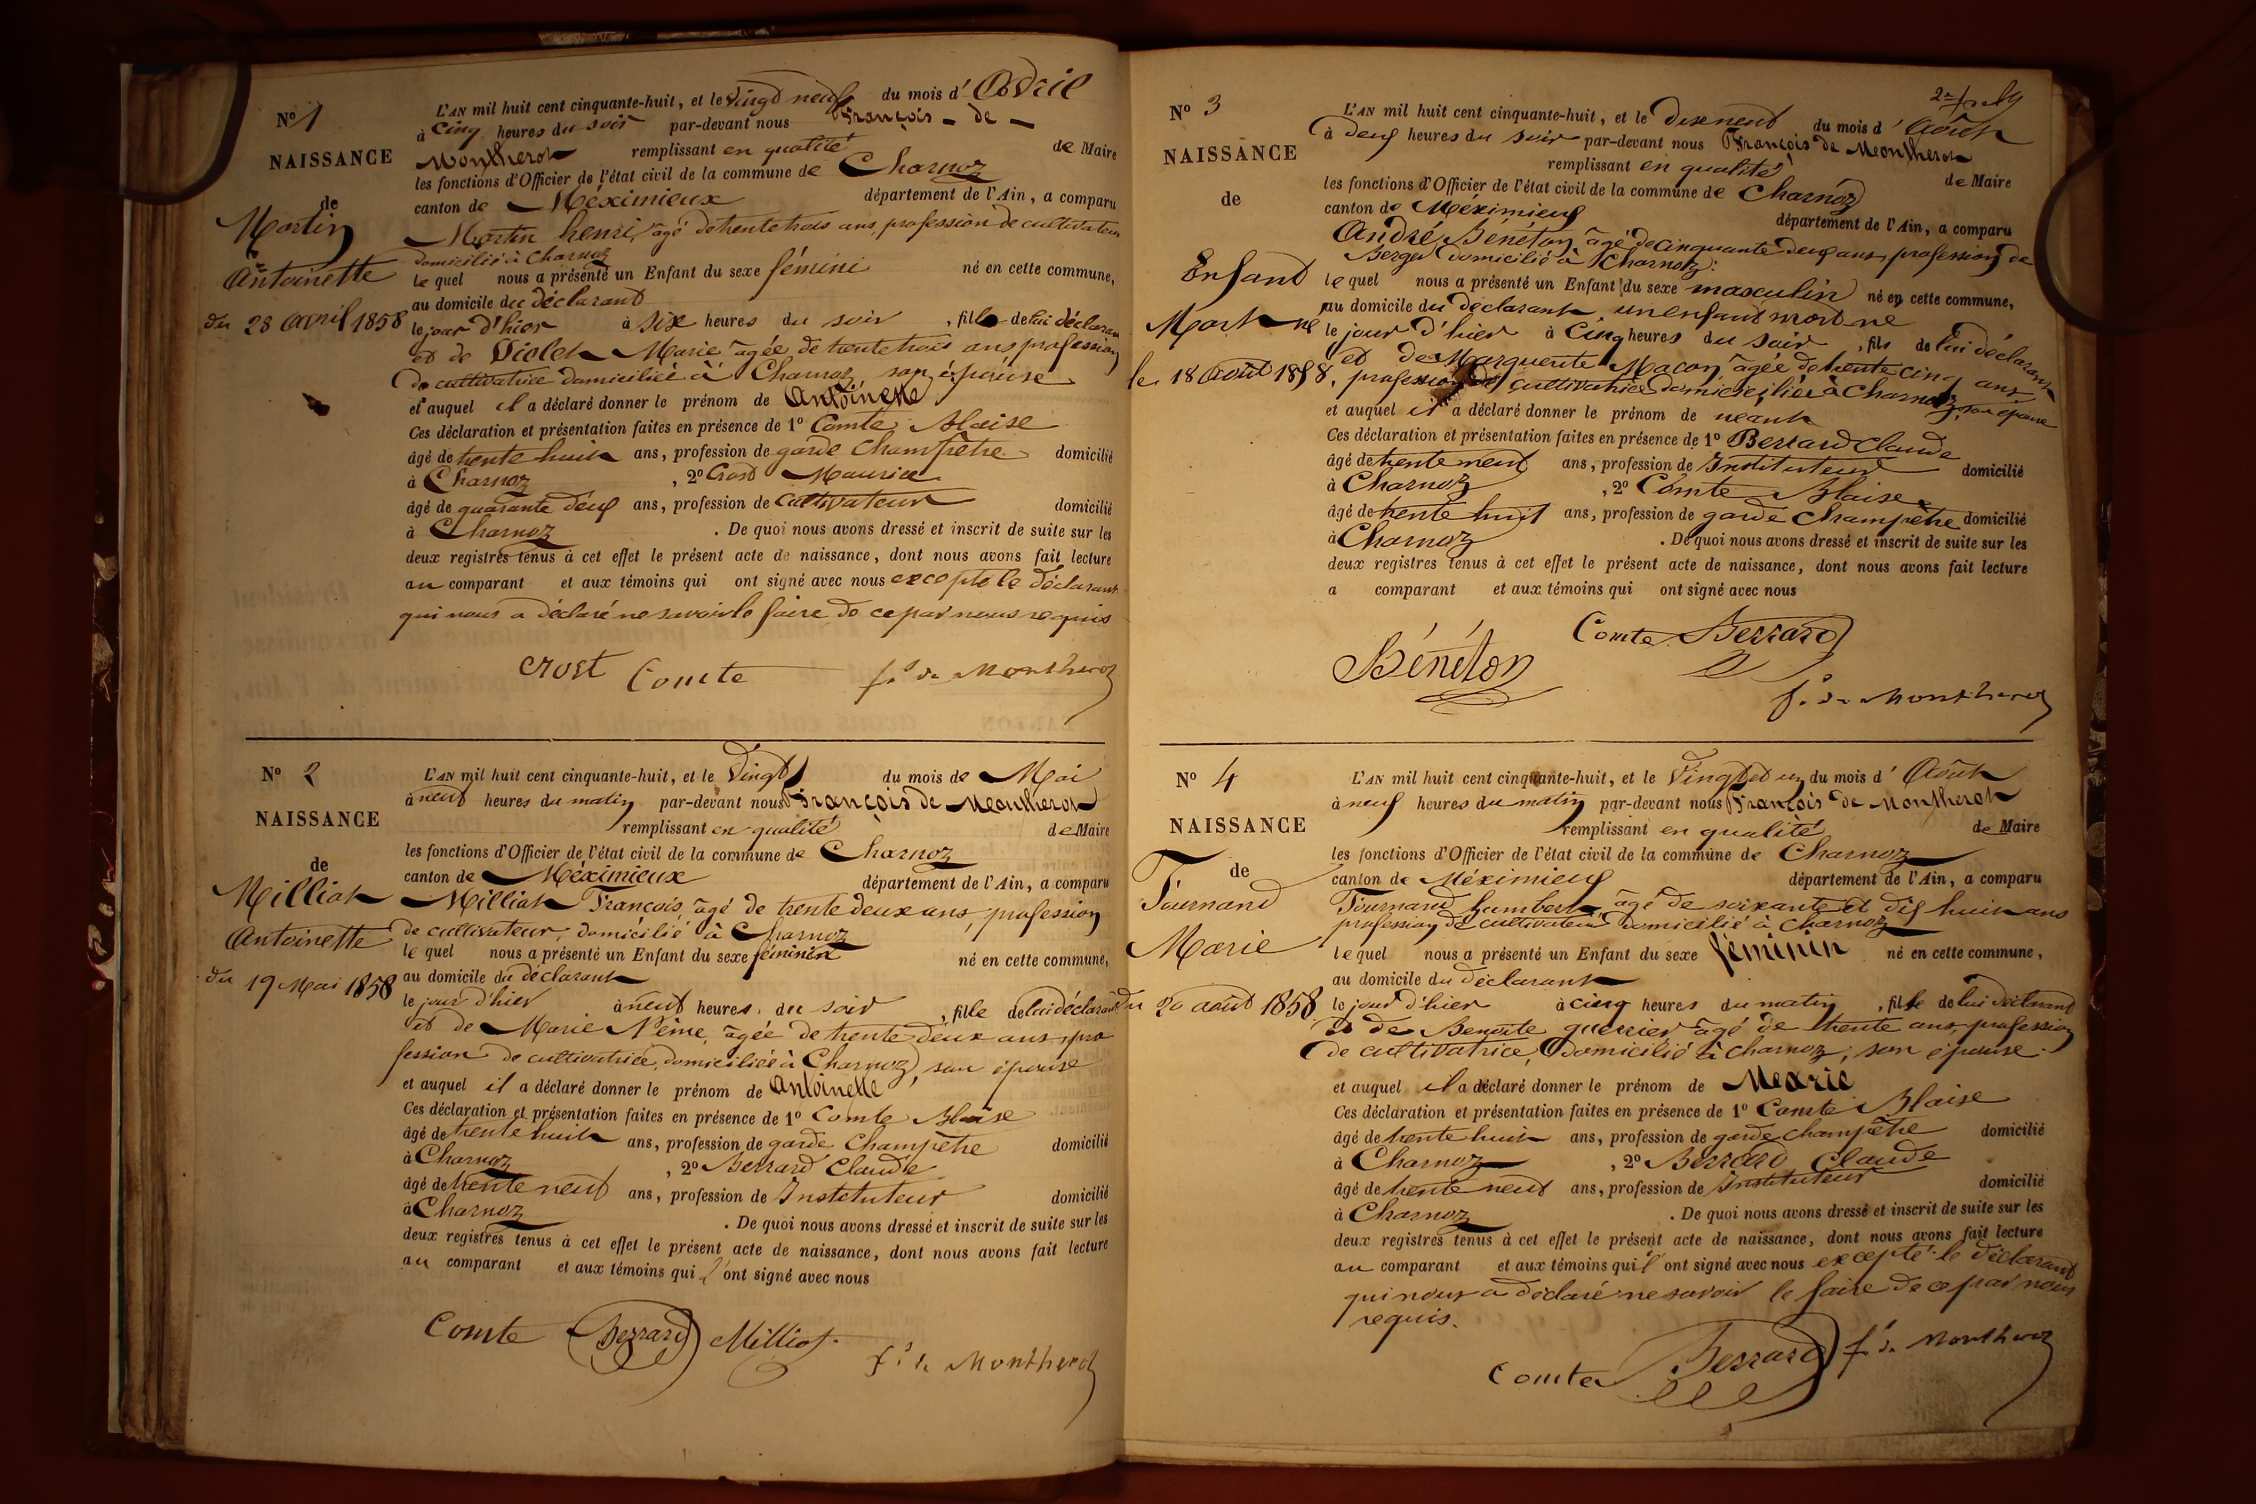 N° 1
NAISSANCE
de
Martin
Antoinette
du 28 avril 1858
L'AN mil huit cent cinquante-huit, et le vingt neuf du mois d'Avril
à cinq heures du soir par-devant nous François de
Montherot remplissant en qualité de Maire
les fonctions d'Officier de l'état civil de la commune de Charnoz
canton de Méximieux département de l'Ain, a comparu
Martin henri, âgé de trente trois ans, profession de cultivateur
domicilié à Charnoz
le quel nous a présenté un Enfant du sexe féminin né en cette commune,
au domicile du déclarant
le jour d'hier à six heures du soir, fille de lui déclarant
et de Violet Marie âgée de trente trois ans profession
de cultivatrice domiciliée à Charnoz son épouse
et auquel il a déclaré donner le prénom de Antoinette
Ces déclaration et présentation faites en présence de 1° Comte Blaise
âgé de trente huit ans, profession de garde Champêtre domicilié
à Charnoz, 2° Crost Maurice
âgé de quarante deux ans, profession de Cultivateur domicilié
à Charnoz. De quoi nous avons dressé et inscrit de suite sur les
deux registres tenus à cet effet le présent acte de naissance, dont nous avons fait lecture
au comparant et aux témoins qui ont signé avec nous excepté le déclarant
qui nous a déclaré ne savoir le faire de ce par nous requis
crost Comte f. de Montherot
N° 2
NAISSANCE
de
Milliat
Antoinette
du 19 Mai 1858
L'AN mil huit cent cinquante-huit, et le Vingt du mois de Mai
à neuf heures du matin par-devant nous François de Montherot
remplissant en qualité de Maire
les fonctions d'Officier de l'état civil de la commune de Charnoz
canton de Méximieux département de l'Ain, a comparu
Milliat François, âgé de trente deux ans, profession
de cultivateur, domicilié à Charnoz
le quel nous a présenté un Enfant du sexe féminin né en cette commune,
au domicile du déclarant
le jour d'hier à neuf heures du soir, fille de lui déclarant
et de Marie Néme, âgée de trente deux ans, pro
fession de cultivatrice, domiciliée à Charnoz, son épouse
et auquel il a déclaré donner le prénom de Antoinette
Ces déclaration et présentation faites en présence de 1° Comte Blaise
âgé de trente huit ans, profession de garde Champêtre domicilié
à Charnoz, 2° Berrard Claude
âgé de trente neuf ans, profession de Instituteur domicilié
à Charnoz. De quoi nous avons dressé et inscrit de suite sur les
deux registres tenus à cet effet le présent acte de naissance, dont nous avons fait lecture
au comparant et aux témoins qui ont signé avec nous
Comte Berrard Milliat
f. de Montherot
N° 3
NAISSANCE
de
Enfant
Mort né
le 18 Août 1858
L'AN mil huit cent cinquante-huit, et le dix neuf du mois d'Août
à deux heures du soir par-devant nous François de Montherot
remplissant en qualité de Maire
les fonctions d'Officier de l'état civil de la commune de Charnoz
canton de Méximieux département de l'Ain, a comparu
André Bénéton, âgé de cinquante deux ans, profession de
Berger domicilié à Charnoz
le quel nous a présenté un Enfant du sexe masculin né en cette commune,
au domicile du déclarant, un enfant mort né
le jour d'hier à Cinq heures du soir, fils de lui déclarant
et de Marguerite Macon, âgée de trente cinq ans
profession de cultivatrice domiciliée à Charnoz, son épouse
et auquel il a déclaré donner le prénom de neant
Ces déclaration et présentation faites en présence de 1° Berrard Claude
âgé de trente neuf ans, profession de Instituteur domicilié
à Charnoz, 2° Comte Blaise
âgé de trente huit ans, profession de garde Champêtre domicilié
à Charnoz. De quoi nous avons dressé et inscrit de suite sur les
deux registres tenus à cet effet le présent acte de naissance, dont nous avons fait lecture
a comparant et aux témoins qui ont signé avec nous
Comte Berrard
Bénéton
f. de Montherot
N° 4
NAISSANCE
de
Tournand
Marie
du 20 août 1858
L'AN mil huit cent cinquante-huit, et le Vingt et un du mois d'Août
à neuf heures du matin par-devant nous François de Montherot
remplissant en qualité de Maire
les fonctions d'Officier de l'état civil de la commune de Charnoz
canton de Méximieux département de l'Ain, a comparu
Tournand humbert, âgé de soixante et dix huit ans
profession de cultivateur domicilié à Charnoz
le quel nous a présenté un Enfant du sexe féminin né en cette commune,
au domicile du déclarant
le jour d'hier à cinq heures du matin, fille de lui déclarant
et de Benoite guerrier âgé de trente ans, profession
de cultivatrice, domicilié à charnoz, son épouse
et auquel il a déclaré donner le prénom de Marie
Ces déclaration et présentation faites en présence de 1° Comte Blaise
âgé de trente huit ans, profession de garde champêtre domicilié
à Charnoz, 2° Berrard Claude
âgé de trente neuf ans, profession de Instituteur domicilié
à Charnoz. De quoi nous avons dressé et inscrit de suite sur les
deux registres tenus à cet effet le présent acte de naissance, dont nous avons fait lecture
au comparant et aux témoins qui ont signé avec nous excepté le déclarant
qui nous a déclaré ne savoir le faire de ce par nous
requis.
Comte Berrard f. de Montherot